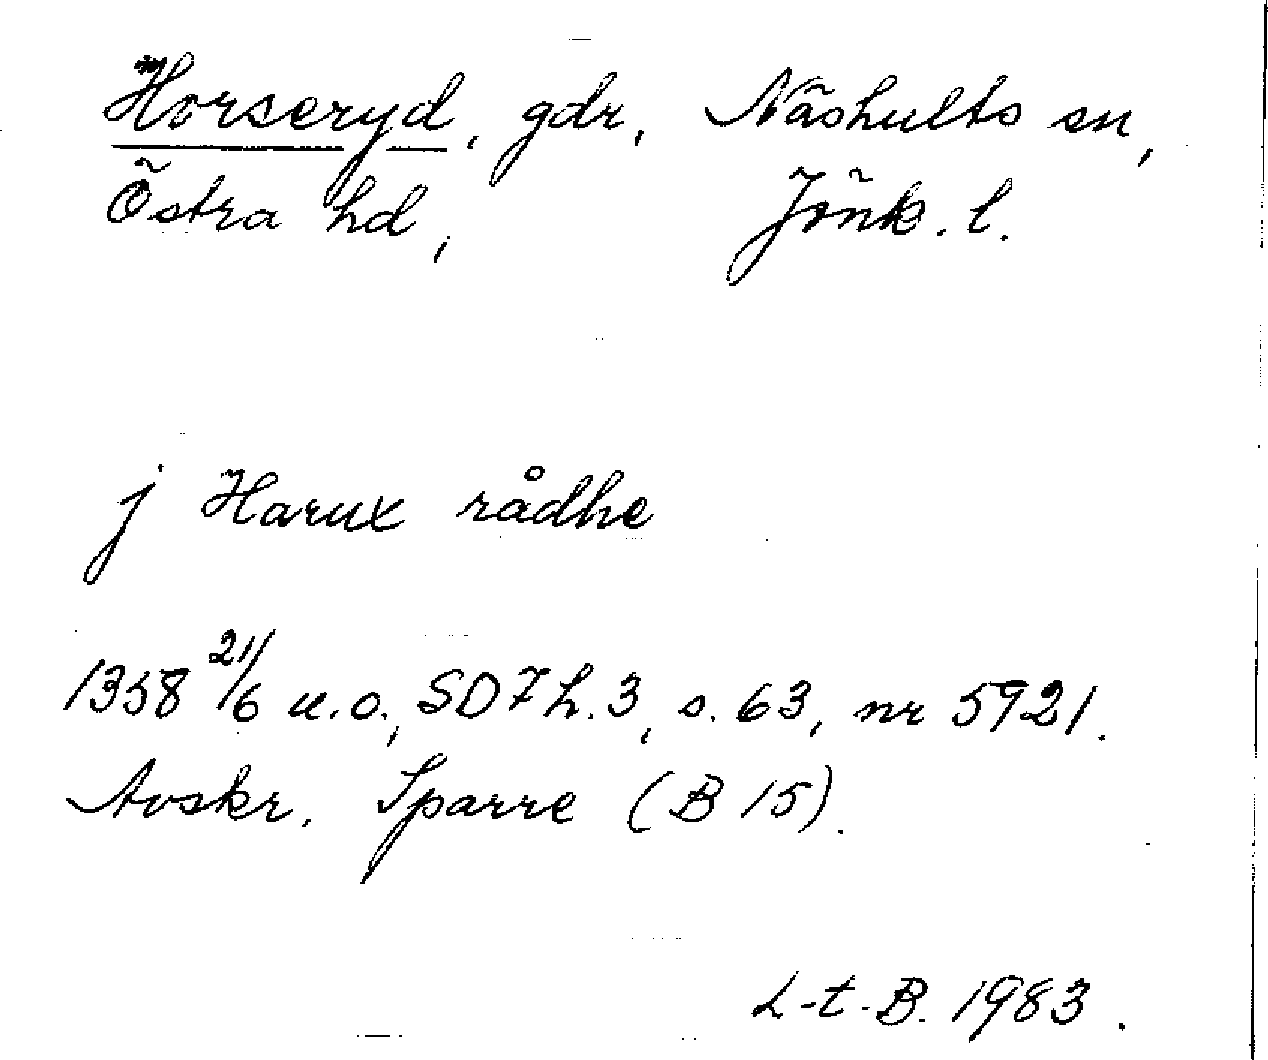 Horseryd, gdr, Näshults sn,
Östra hd, Jönk. l.
j Harux rådhe
1358 21/6 u.o., SD 7 h. 3, s. 63, nr 5921.
Avskr. Sparre (B 15).
L-t-B. 1983.